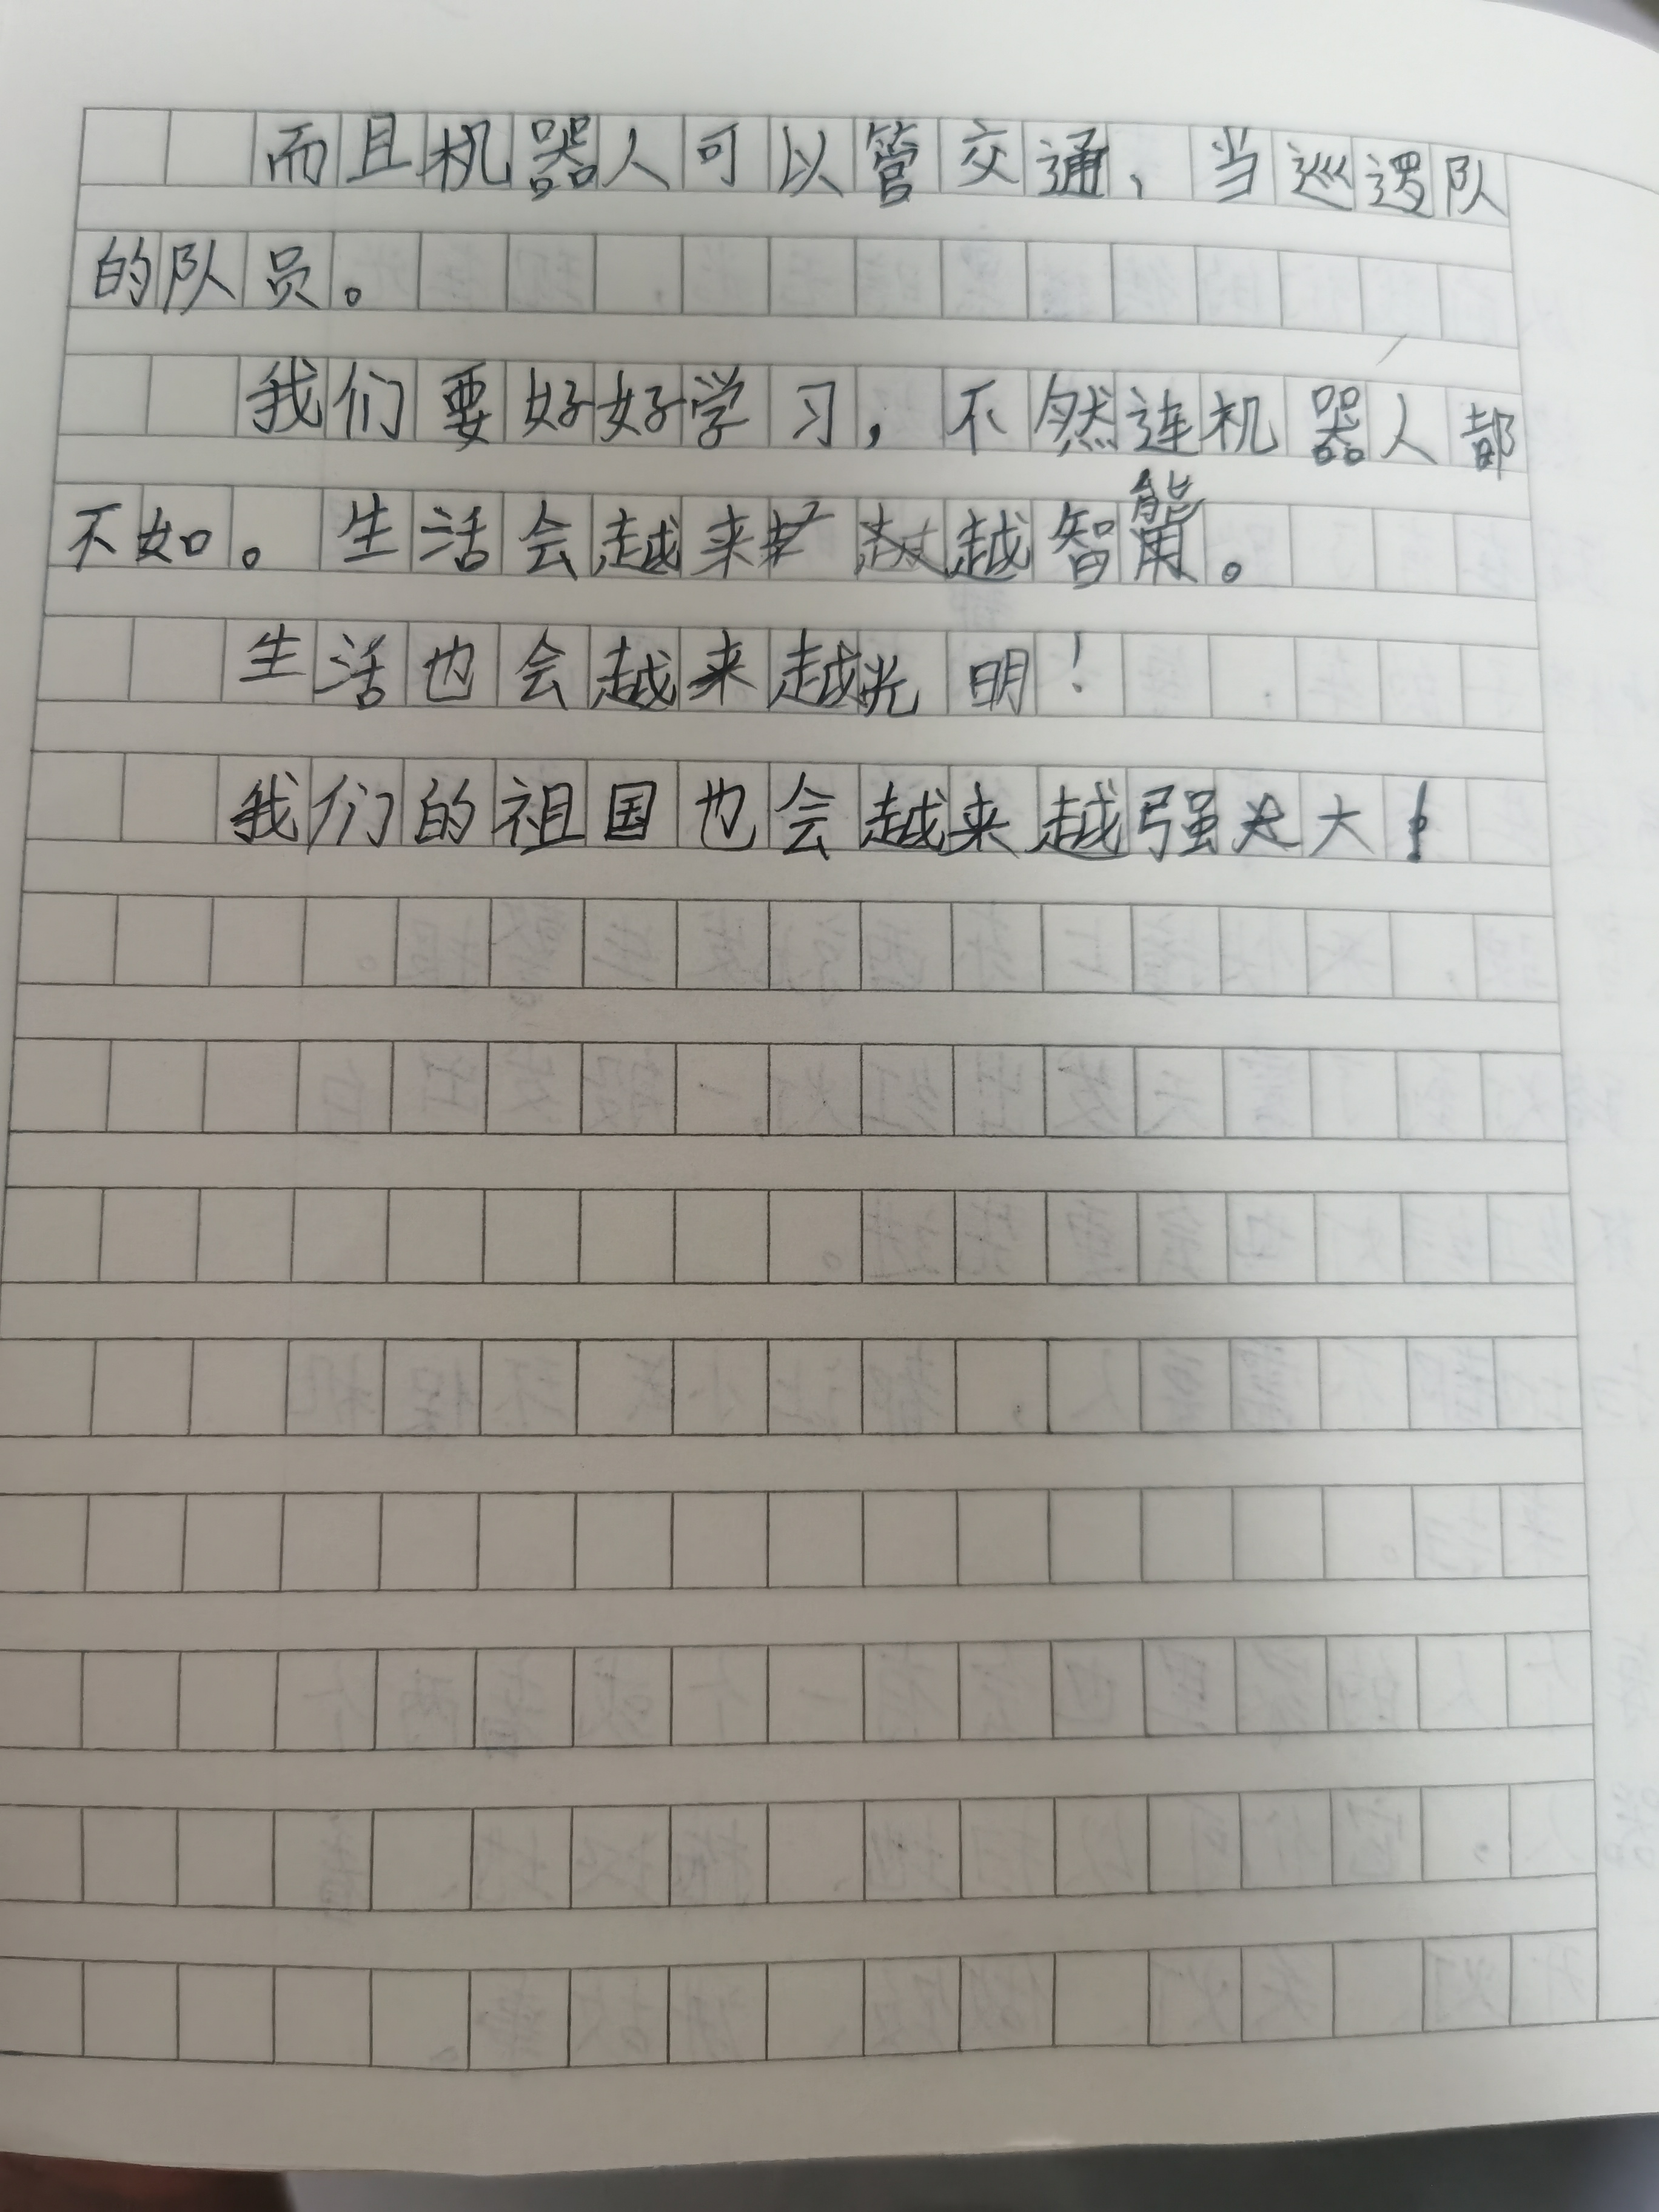 而且机器人可以管交通、当巡逻队
的队员。
我们要好好学习，不然连机器人都
不如。生活会越来越智能。
生活也会越来越光明！
我们的祖国也会越来越强大！